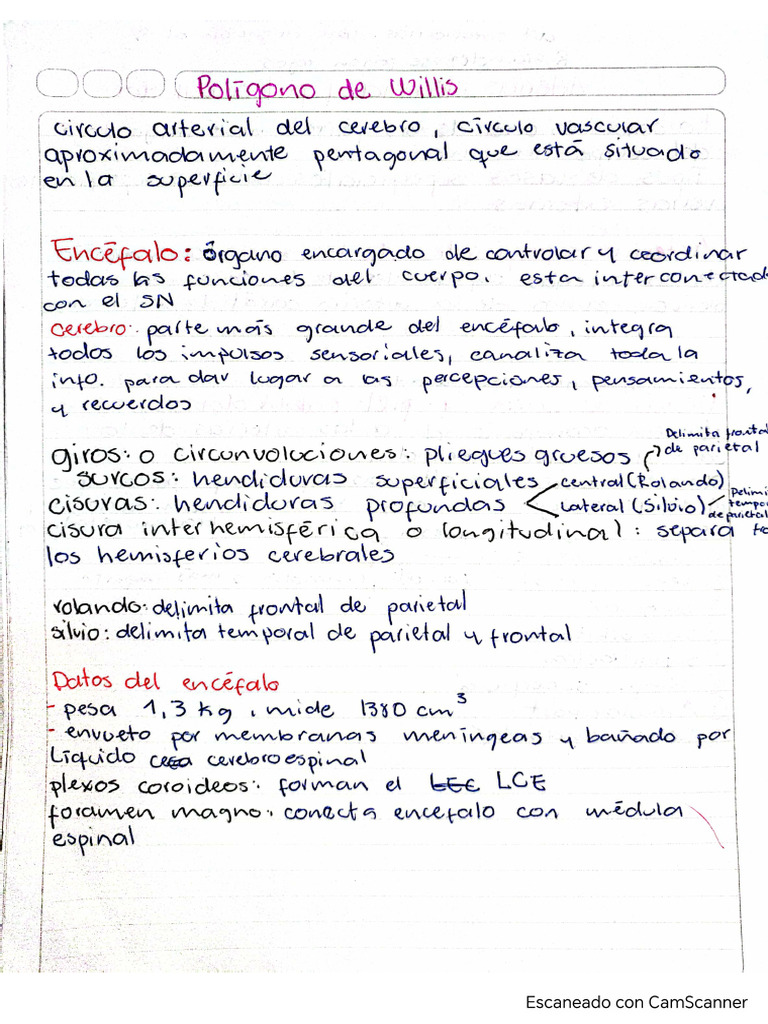 Polígono de Willis
circulo arterial del cerebro, círculo vascular
aproximadamente pentagonal que está situado
en la superficie
Encéfalo: órgano encargado de controlar y coordinar
todas las funciones del cuerpo. esta interconectado
con el SN
cerebro: parte más grande del encéfalo, integra
todos los impulsos sensoriales, canaliza toda la
info. para dar lugar a las percepciones, pensamientos,
y recuerdos
Delimita frontal
de parietal
giros: o circunvoluciones: pliegues gruesos
surcos: hendiduras superficiales
central (Rolando)
cisuras: hendiduras profundas
Lateral (Silvio)
Delimi
tempo
de parietal
cisura interhemisférica o longitudinal: separa to
los hemisferios cerebrales
rolando: delimita frontal de parietal
silvio: delimita temporal de parietal y frontal
Datos del encéfalo
- pesa 1,3 kg, mide 1380 cm³
- envueto por membranas meníngeas y bañado por
Líquido cerebroespinal
plexos coroideos: forman el LCE
foramen magno: conecta encefalo con médula
espinal
Escaneado con CamScanner